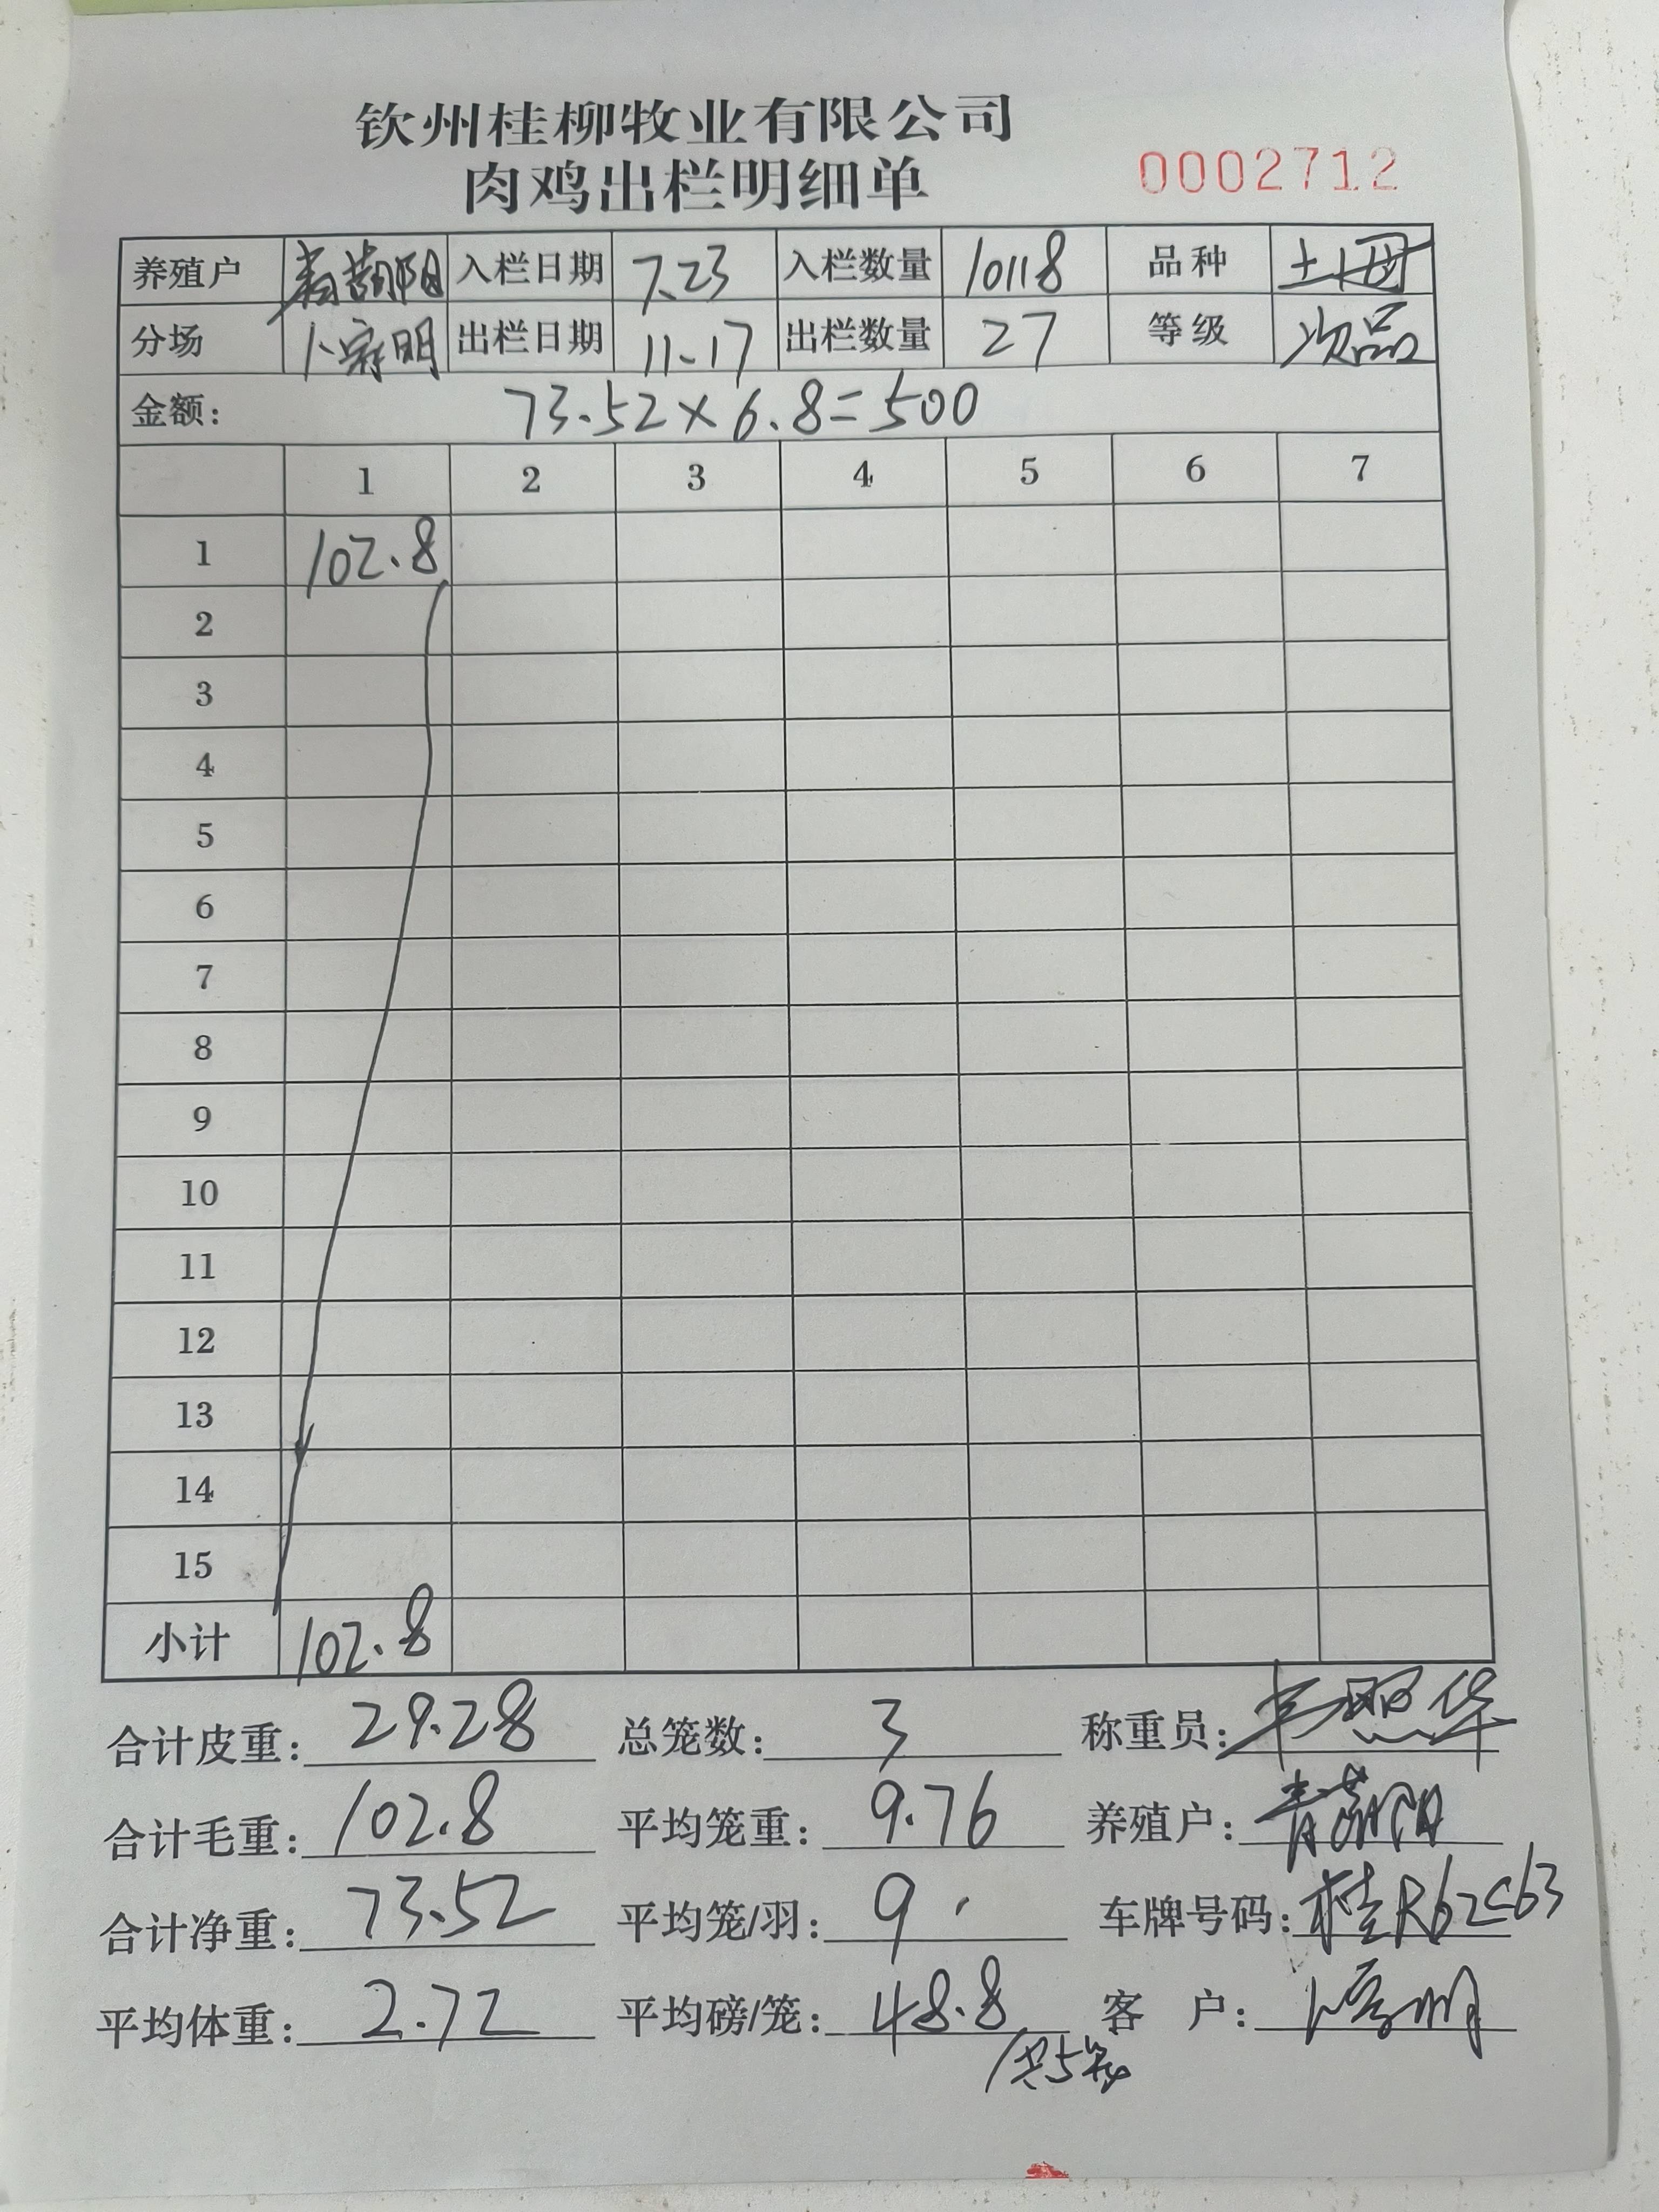 钦州桂柳牧业有限公司
肉鸡出栏明细单 0002712
养殖户 入栏日期 7.23 入栏数量 10118 品种 土母
分场 明 出栏日期 11-17 出栏数量 27 等级 次品
金额: 73.52×6.8=500
1 2 3 4 5 6 7
1 102.8
2
3
4
5
6
7
8
9
10
11
12
13
14
15
小计 102.8
合计皮重: 29.28 总笼数: 3 称重员: 韦照华
合计毛重: 102.8 平均笼重: 9.76 养殖户:
合计净重: 73.52 平均笼/羽: 9 车牌号码: 桂R62C63
平均体重: 2.72 平均磅/笼: 48.8 客 户:
/共5笼